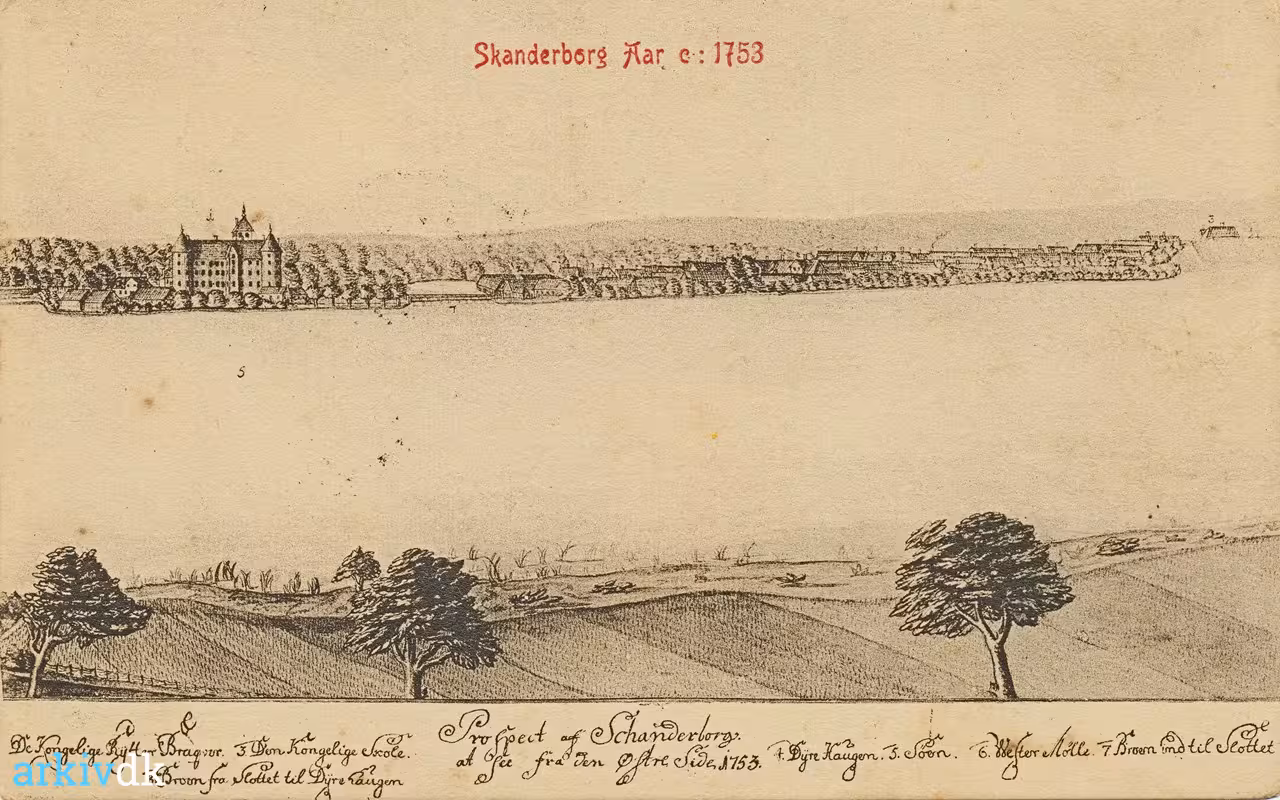 Skanderborg Aar c: 1753
3
5
7
De Kongelige Rytter Braquer. 3 Den Kongelige Skole.
Broen fra Slottet til Dyre Haugen
Prospect af Schanderborg.
at See fra den Østre Side, 1753.
4. Dyre Haugen. 5. Søen. 6. Wester Mölle. 7 Broen ind til Slottet
arkivdk